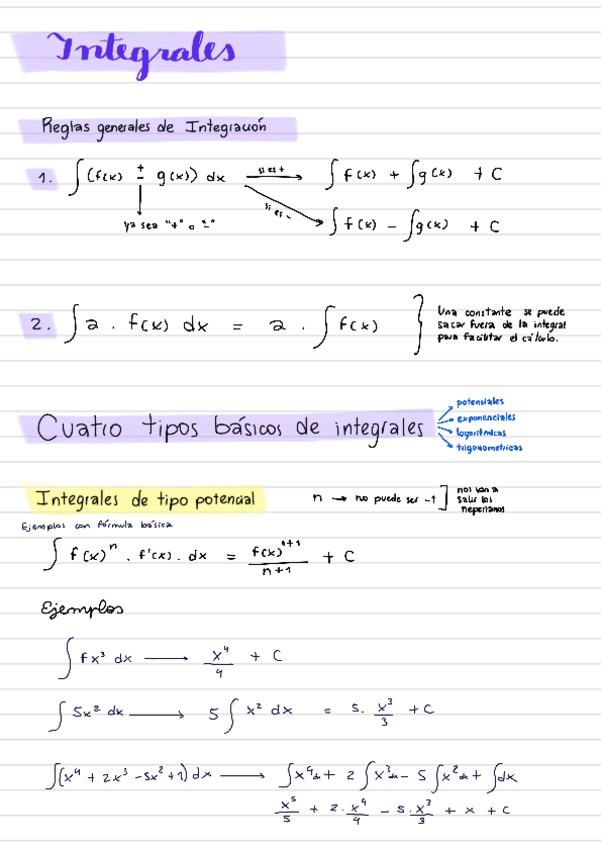 Integrales
Reglas generales de Integración
1. ∫(f(x) ± g(x)) dx —si es +→ ∫f(x) + ∫g(x) + C
ya sea "+" o "-" si es - → ∫f(x) - ∫g(x) + C
2. ∫a . f(x) dx = a . ∫f(x) } Una constante se puede
sacar fuera de la integral
para facilitar el cálculo.
Cuatro tipos básicos de integrales
potenciales
exponenciales
logarítmicas
trigonometricas
Integrales de tipo potencial
n → no puede ser -1 ] nos van a
salir los
neperianos
Ejemplos con fórmula básica
∫f(x)ⁿ . f'(x) . dx = f(x)ⁿ⁺¹/n+1 + C
Ejemplos
∫fx³ dx → x⁴/4 + C
∫5x² dx → 5∫x² dx = 5. x³/3 + C
∫(x⁴ + 2x³ - 5x² + 1) dx → ∫x⁴dx + 2∫x³dx - 5∫x²dx + ∫dx
x⁵/5 + 2. x⁴/4 - 5. x³/3 + x + C